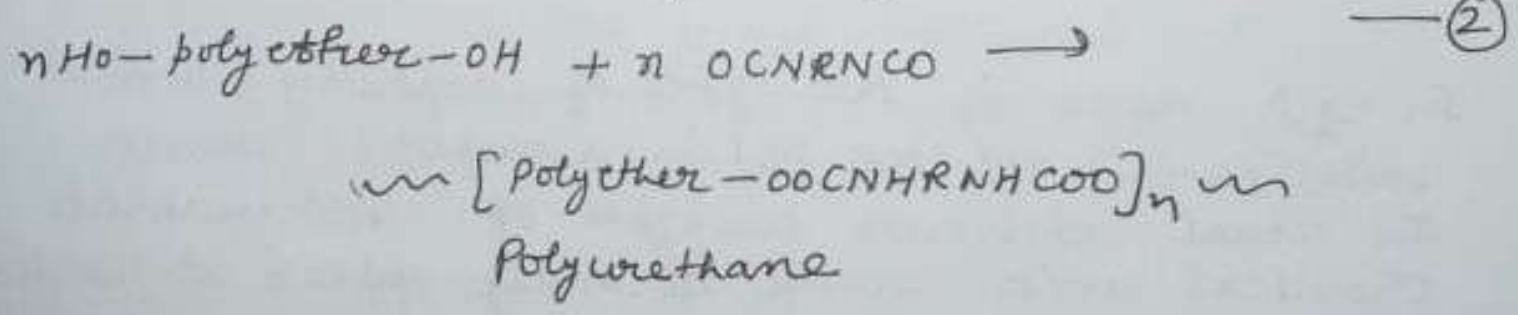 —②
nHO–polyether–OH + n OCNRNCO →
[Polyether–OOCNHRNHCOO]n
Polyurethane